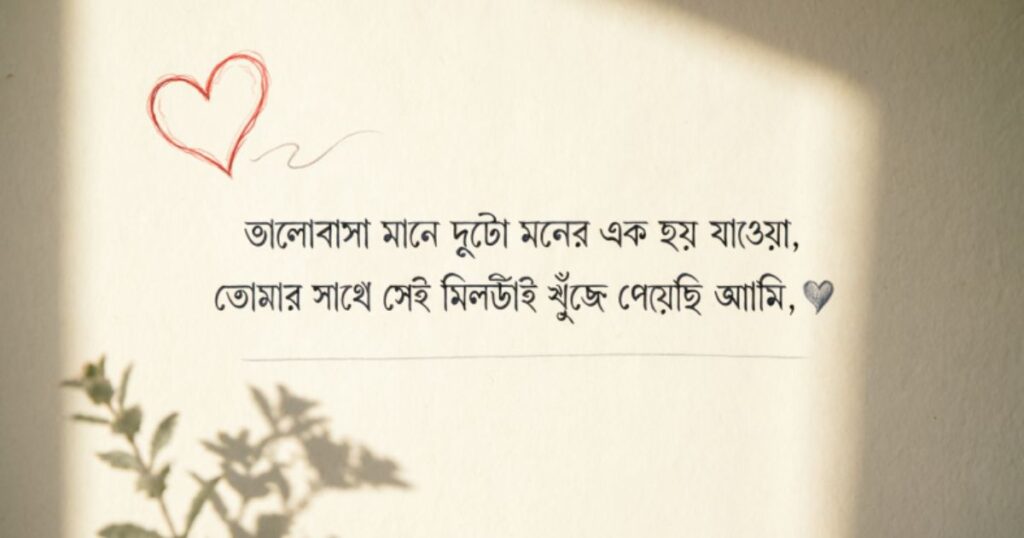 ভালোবাসা মানে দুটো মনের এক হয় যাওয়া,
তোমার সাথে সেই মিলটাই খুঁজে পেয়েছি আামি,